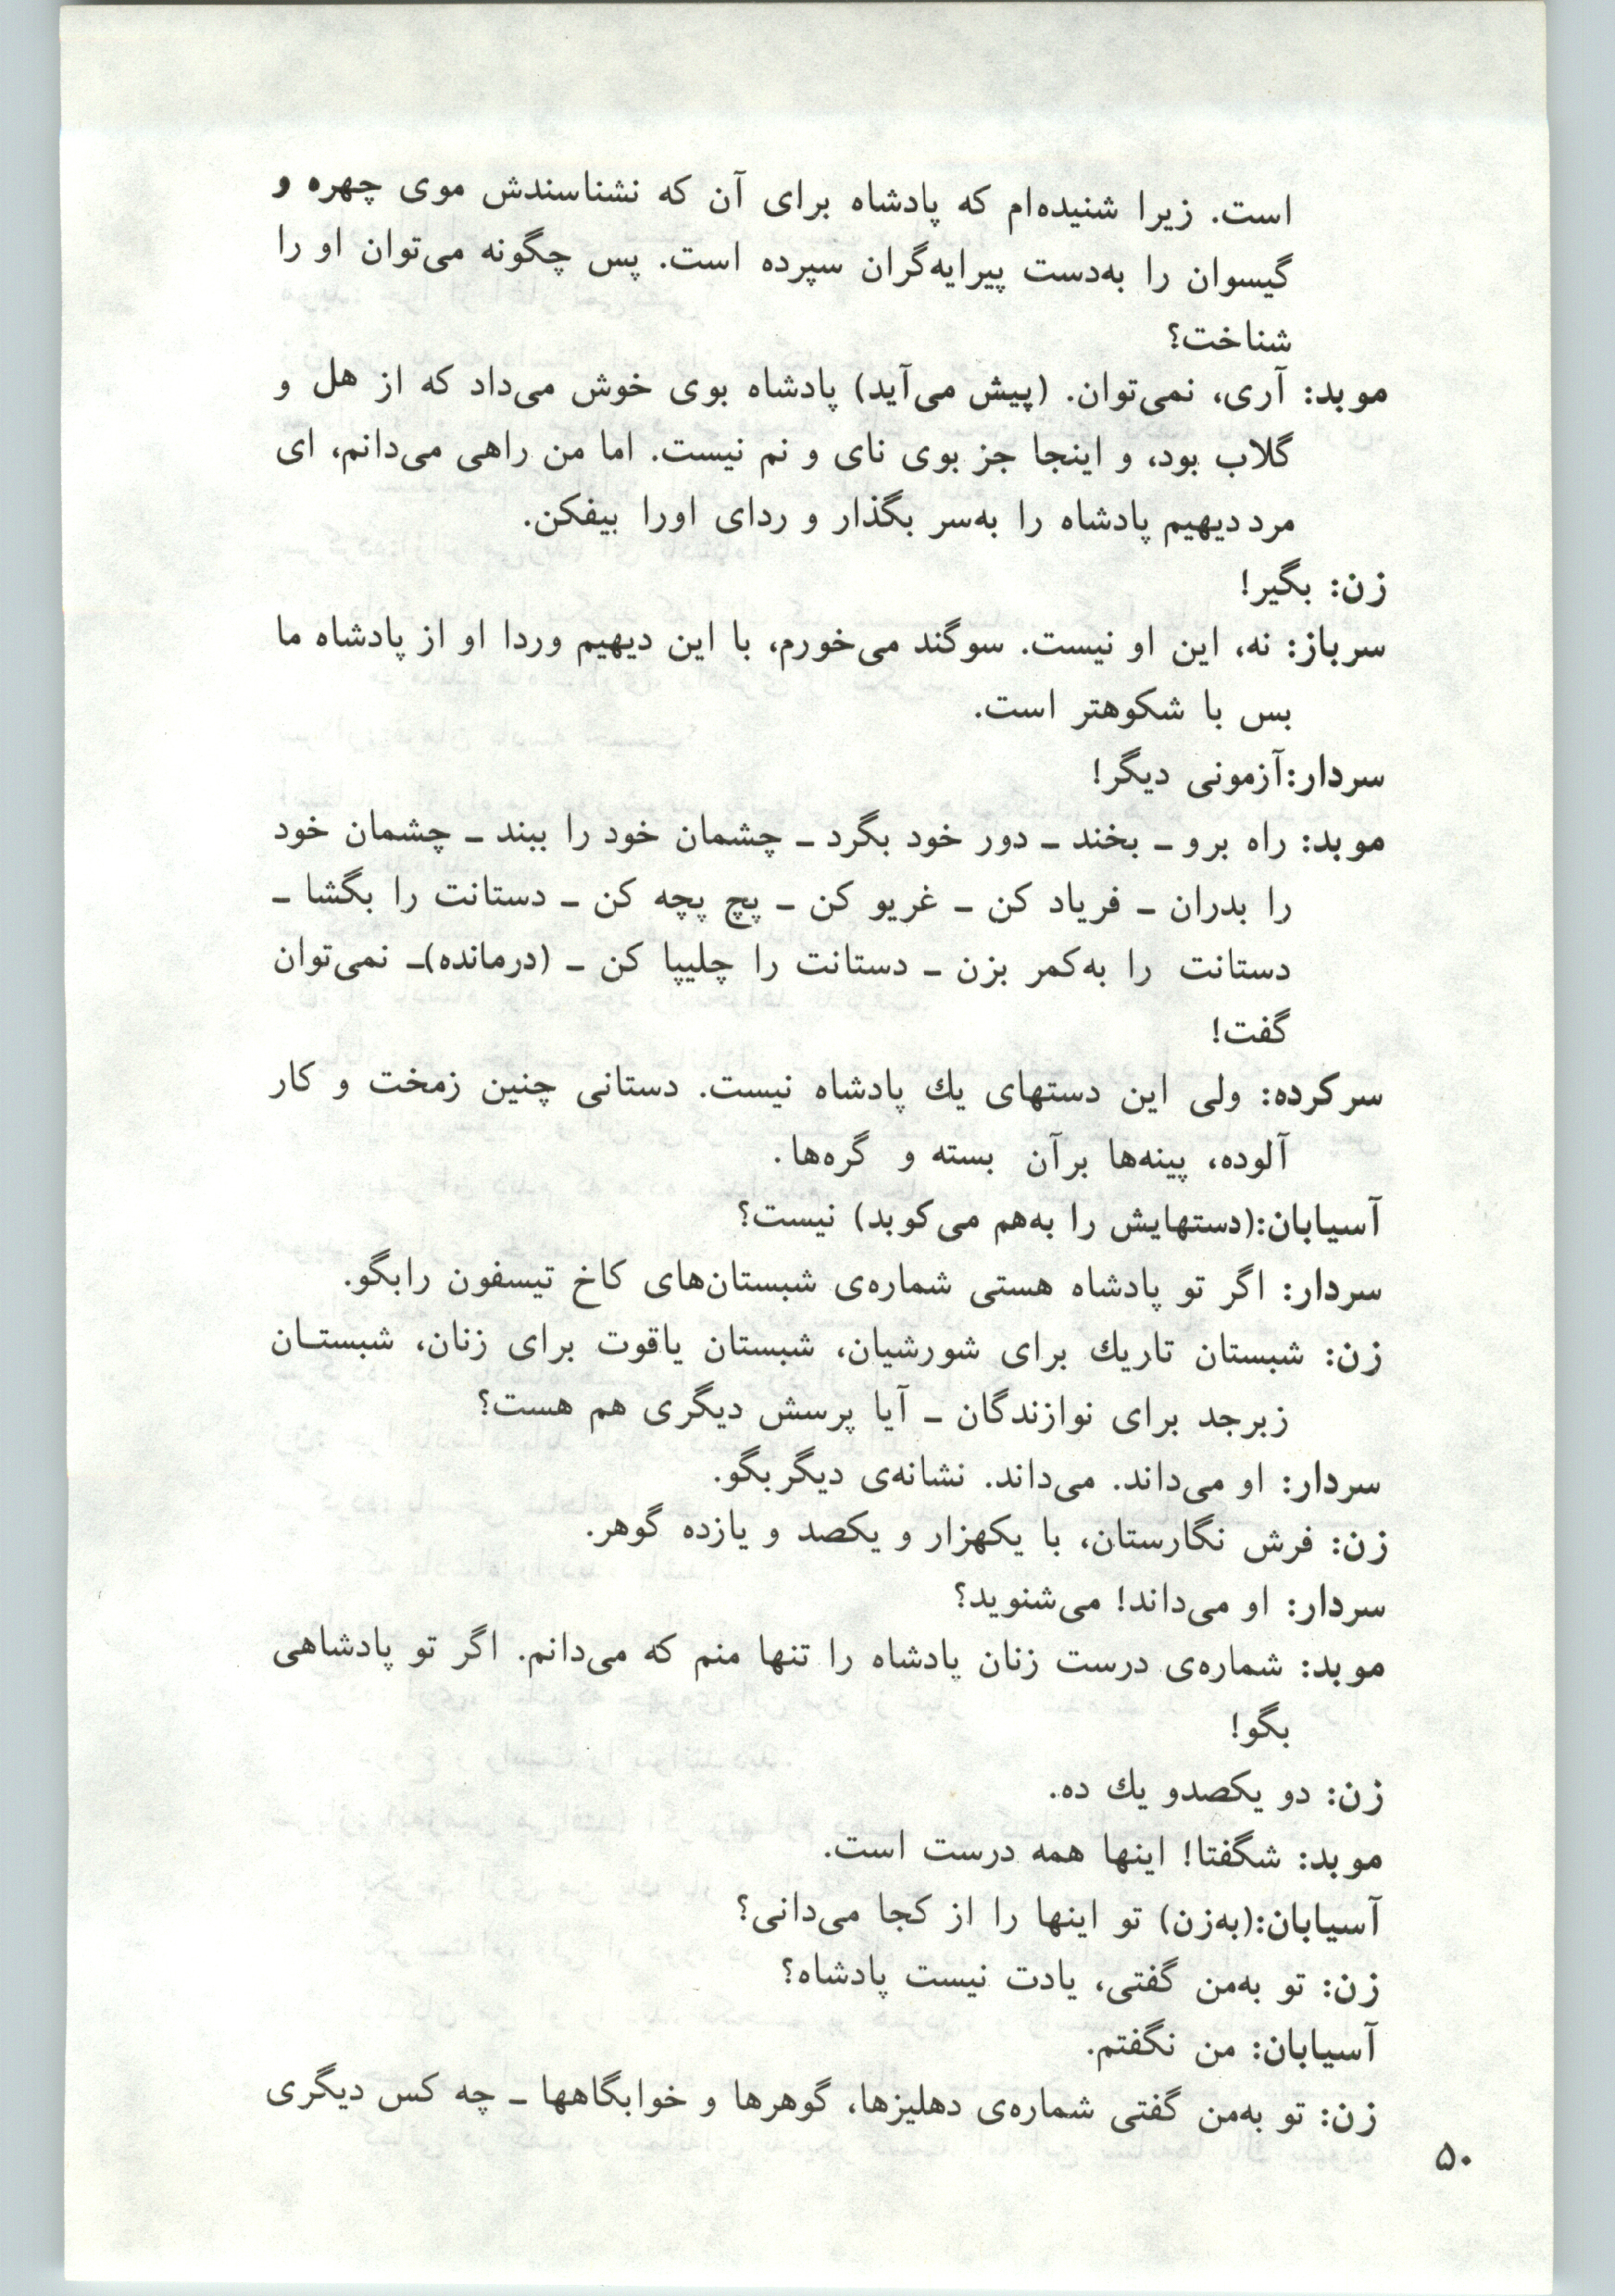 است. زیرا شنیده‌ام که پادشاه برای آن که نشناسندش موی چهره و
گیسوان را به‌دست پیرایه‌گران سپرده است. پس چگونه می‌توان او را
شناخت؟
موبد: آری، نمی‌توان. (پیش می‌آید) پادشاه بوی خوش می‌داد که از هل و
گلاب بود، و اینجا جز بوی نای و نم نیست. اما من راهی می‌دانم، ای
مرد دیهیم پادشاه را به‌سر بگذار و ردای اورا بیفکن.
زن: بگیر!
سرباز: نه، این او نیست. سوگند می‌خورم، با این دیهیم وردا او از پادشاه ما
بس با شکوهتر است.
سردار:آزمونی دیگر!
موبد: راه برو ـ بخند ـ دور خود بگرد ـ چشمان خود را ببند ـ چشمان خود
را بدران ـ فریاد کن ـ غریو کن ـ پچ پچه کن ـ دستانت را بگشا ـ
دستانت را به‌کمر بزن ـ دستانت را چلیپا کن ـ (درمانده)ـ نمی‌توان
گفت!
سرکرده: ولی این دستهای یك پادشاه نیست. دستانی چنین زمخت و کار
آلوده، پینه‌ها برآن بسته و گره‌ها.
آسیابان:(دستهایش را به‌هم می‌کوبد) نیست؟
سردار: اگر تو پادشاه هستی شماره‌ی شبستان‌های کاخ تیسفون رابگو.
زن: شبستان تاریك برای شورشیان، شبستان یاقوت برای زنان، شبستـان
زبرجد برای نوازندگان ـ آیا پرسش دیگری هم هست؟
سردار: او می‌داند. می‌داند. نشانه‌ی دیگربگو.
زن: فرش نگارستان، با یکهزار و یکصد و یازده گوهر.
سردار: او می‌داند! می‌شنوید؟
موبد: شماره‌ی درست زنان پادشاه را تنها منم که می‌دانم. اگر تو پادشاهی
بگو!
زن: دو یکصدو یك ده.
موبد: شگفتا! اینها همه درست است.
آسیابان:(به‌زن) تو اینها را از کجا می‌دانی؟
زن: تو به‌من گفتی، یادت نیست پادشاه؟
آسیابان: من نگفتم.
زن: تو به‌من گفتی شماره‌ی دهلیزها، گوهرها و خوابگاهها ـ چه کس دیگری
۵۰